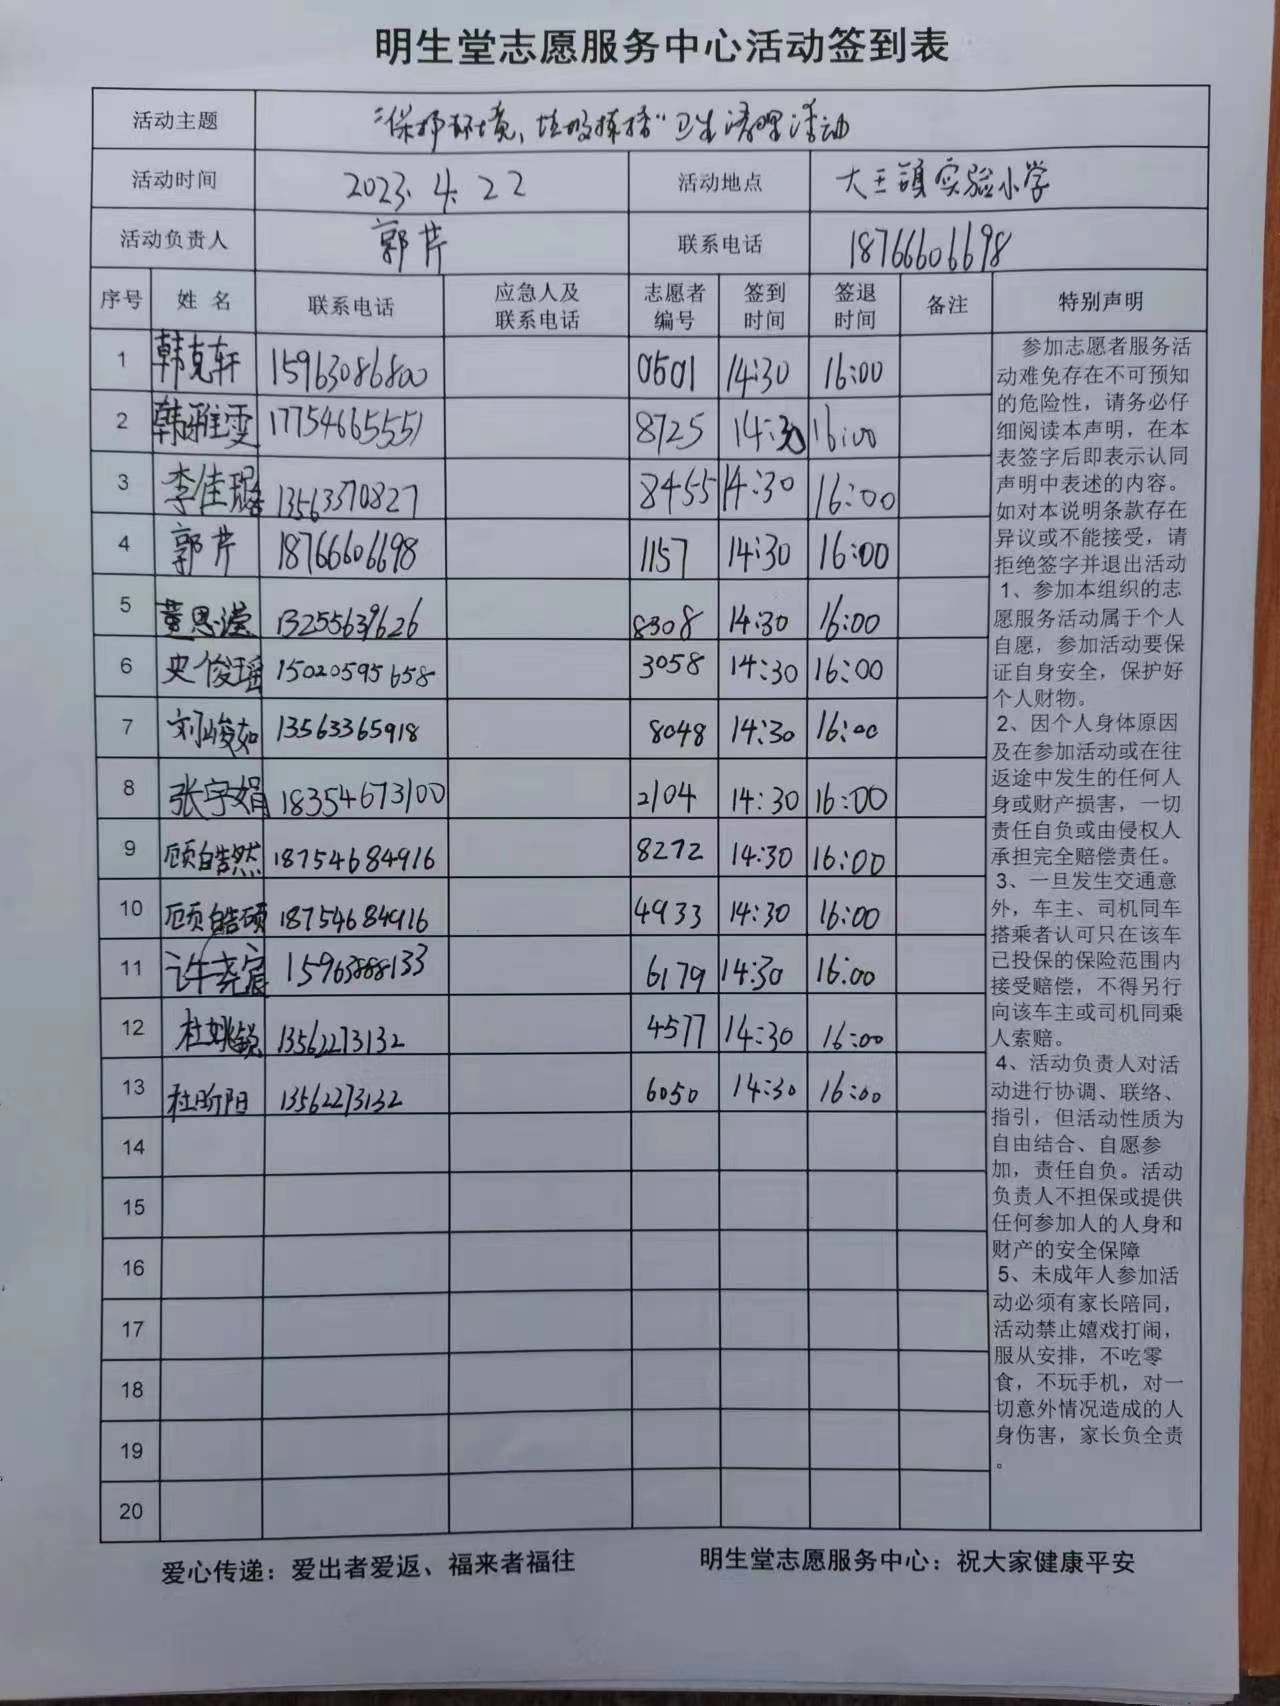 明生堂志愿服务中心活动签到表
活动主题 "保护环境、垃圾拣拾"卫生清理活动
活动时间 2023.4.22 活动地点 大王镇实验小学
活动负责人 郭芹 联系电话 18766606698
序号 姓名 联系电话 应急人及联系电话 志愿者编号 签到时间 签退时间 备注 特别声明
1 韩克轩 15963086800 0501 14:30 16:00
2 韩雅雯 17754665551 8725 14:30 16:00
3 李佳璐 13563370827 8455 14:30 16:00
4 郭芹 18766606698 1157 14:30 16:00
5 黄思滢 13255639626 8308 14:30 16:00
6 史俊瑶 15020595658 3058 14:30 16:00
7 刘峻如 13563365918 8048 14:30 16:00
8 张宇娟 18354673100 2104 14:30 16:00
9 顾皓然 18754684916 8272 14:30 16:00
10 顾皓硕 18754684916 4933 14:30 16:00
11 许尧宸 15963888133 6179 14:30 16:00
12 杜姚 13562273132 4577 14:30 16:00
13 杜昕阳 13562273132 6050 14:30 16:00
14
15
16
17
18
19
20
参加志愿者服务活
动难免存在不可预知
的危险性，请务必仔
细阅读本声明，在本
表签字后即表示认同
声明中表述的内容。
如对本说明条款存在
异议或不能接受，请
拒绝签字并退出活动
1、参加本组织的志
愿服务活动属于个人
自愿，参加活动要保
证自身安全，保护好
个人财物。
2、因个人身体原因
及在参加活动或在往
返途中发生的任何人
身或财产损害，一切
责任自负或由侵权人
承担完全赔偿责任。
3、一旦发生交通意
外，车主、司机同车
搭乘者认可只在该车
已投保的保险范围内
接受赔偿，不得另行
向该车主或司机同乘
人索赔。
4、活动负责人对活
动进行协调、联络、
指引，但活动性质为
自由结合、自愿参
加，责任自负。活动
负责人不担保或提供
任何参加人的人身和
财产的安全保障
5、未成年人参加活
动必须有家长陪同，
活动禁止嬉戏打闹，
服从安排，不吃零
食，不玩手机，对一
切意外情况造成的人
身伤害，家长负全责
。
爱心传递：爱出者爱返、福来者福往 明生堂志愿服务中心：祝大家健康平安